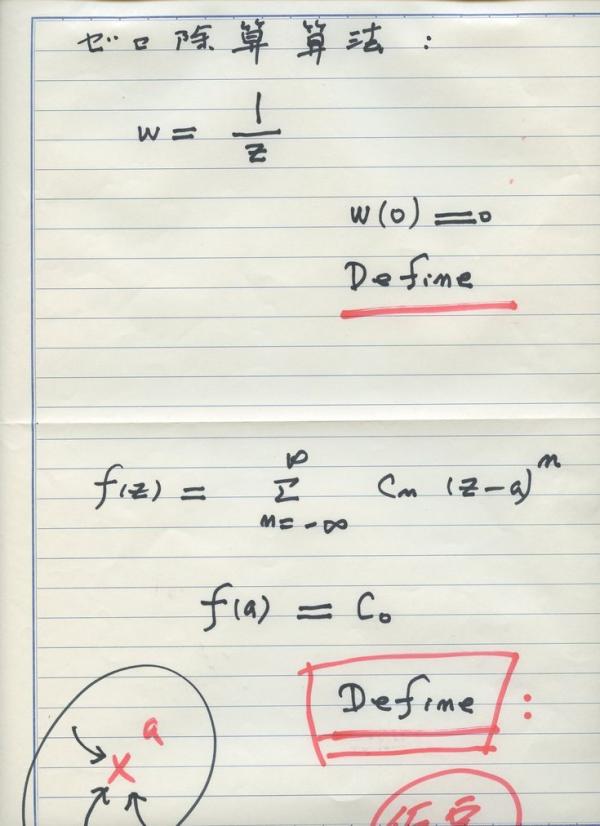 ゼロ除算算法:
w = 1/z
w(0) = 0
Define
f(z) = Σ_{n=-∞}^{∞} C_n (z-a)^n
f(a) = C_0
Define :
a